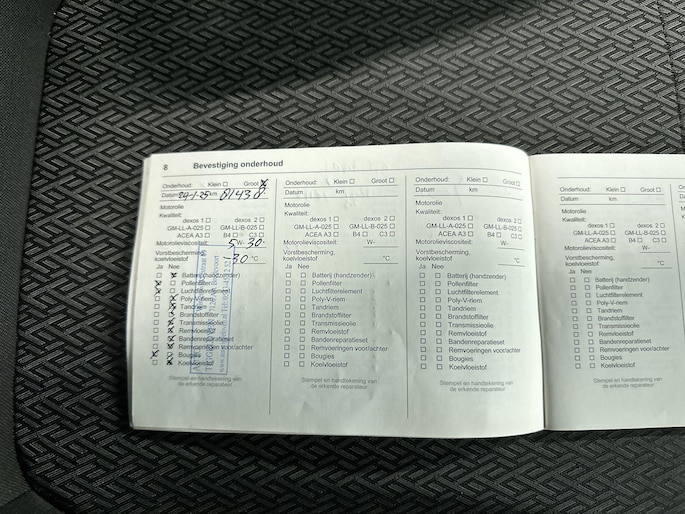 8 Bevestiging onderhoud
Onderhoud: Klein Groot
Datum 24-1-25 km 81430
Motorolie
Kwaliteit:
dexos 1 dexos 2
GM-LL-A-025 GM-LL-B-025
ACEA A3 B4 C3
Motorolieviscositeit: 5W-30
Vorstbescherming,
koelvloeistof -30 °C
Ja Nee
Batterij (handzender)
Pollenfilter
Luchtfilterelement
Poly-V-riem
Tandriem
Brandstoffilter
Transmissieolie
Remvloeistof
Bandenreparatieset
Remvoeringen voor/achter
Bougies
Koelvloeistof
Stempel en handtekening van
de erkende reparateur
Onderhoud: Klein Groot
Datum km
Motorolie
Kwaliteit:
dexos 1 dexos 2
GM-LL-A-025 GM-LL-B-025
ACEA A3 B4 C3
Motorolieviscositeit: W-
Vorstbescherming,
koelvloeistof °C
Ja Nee
Batterij (handzender)
Pollenfilter
Luchtfilterelement
Poly-V-riem
Tandriem
Brandstoffilter
Transmissieolie
Remvloeistof
Bandenreparatieset
Remvoeringen voor/achter
Bougies
Koelvloeistof
Stempel en handtekening van
de erkende reparateur
Onderhoud: Klein Groot
Datum km
Motorolie
Kwaliteit:
dexos 1 dexos 2
GM-LL-A-025 GM-LL-B-025
ACEA A3 B4 C3
Motorolieviscositeit: W-
Vorstbescherming,
koelvloeistof °C
Ja Nee
Batterij (handzender)
Pollenfilter
Luchtfilterelement
Poly-V-riem
Tandriem
Brandstoffilter
Transmissieolie
Remvloeistof
Bandenreparatieset
Remvoeringen voor/achter
Bougies
Koelvloeistof
Stempel en handtekening van
de erkende reparateur
Onderhoud: Klein Groot
Datum km
Motorolie
Kwaliteit:
dexos 1 dexos 2
GM-LL-A-025 GM-LL-B-025
ACEA A3 B4 C3
Motorolieviscositeit: W-
Vorstbescherming,
koelvloeistof °C
Ja Nee
Batterij (handzender)
Pollenfilter
Luchtfilterelement
Poly-V-riem
Tandriem
Brandstoffilter
Transmissieolie
Remvloeistof
Bandenreparatieset
Remvoeringen voor/achter
Bougies
Koelvloeistof
Stempel en handtekening van
de erkende reparateur